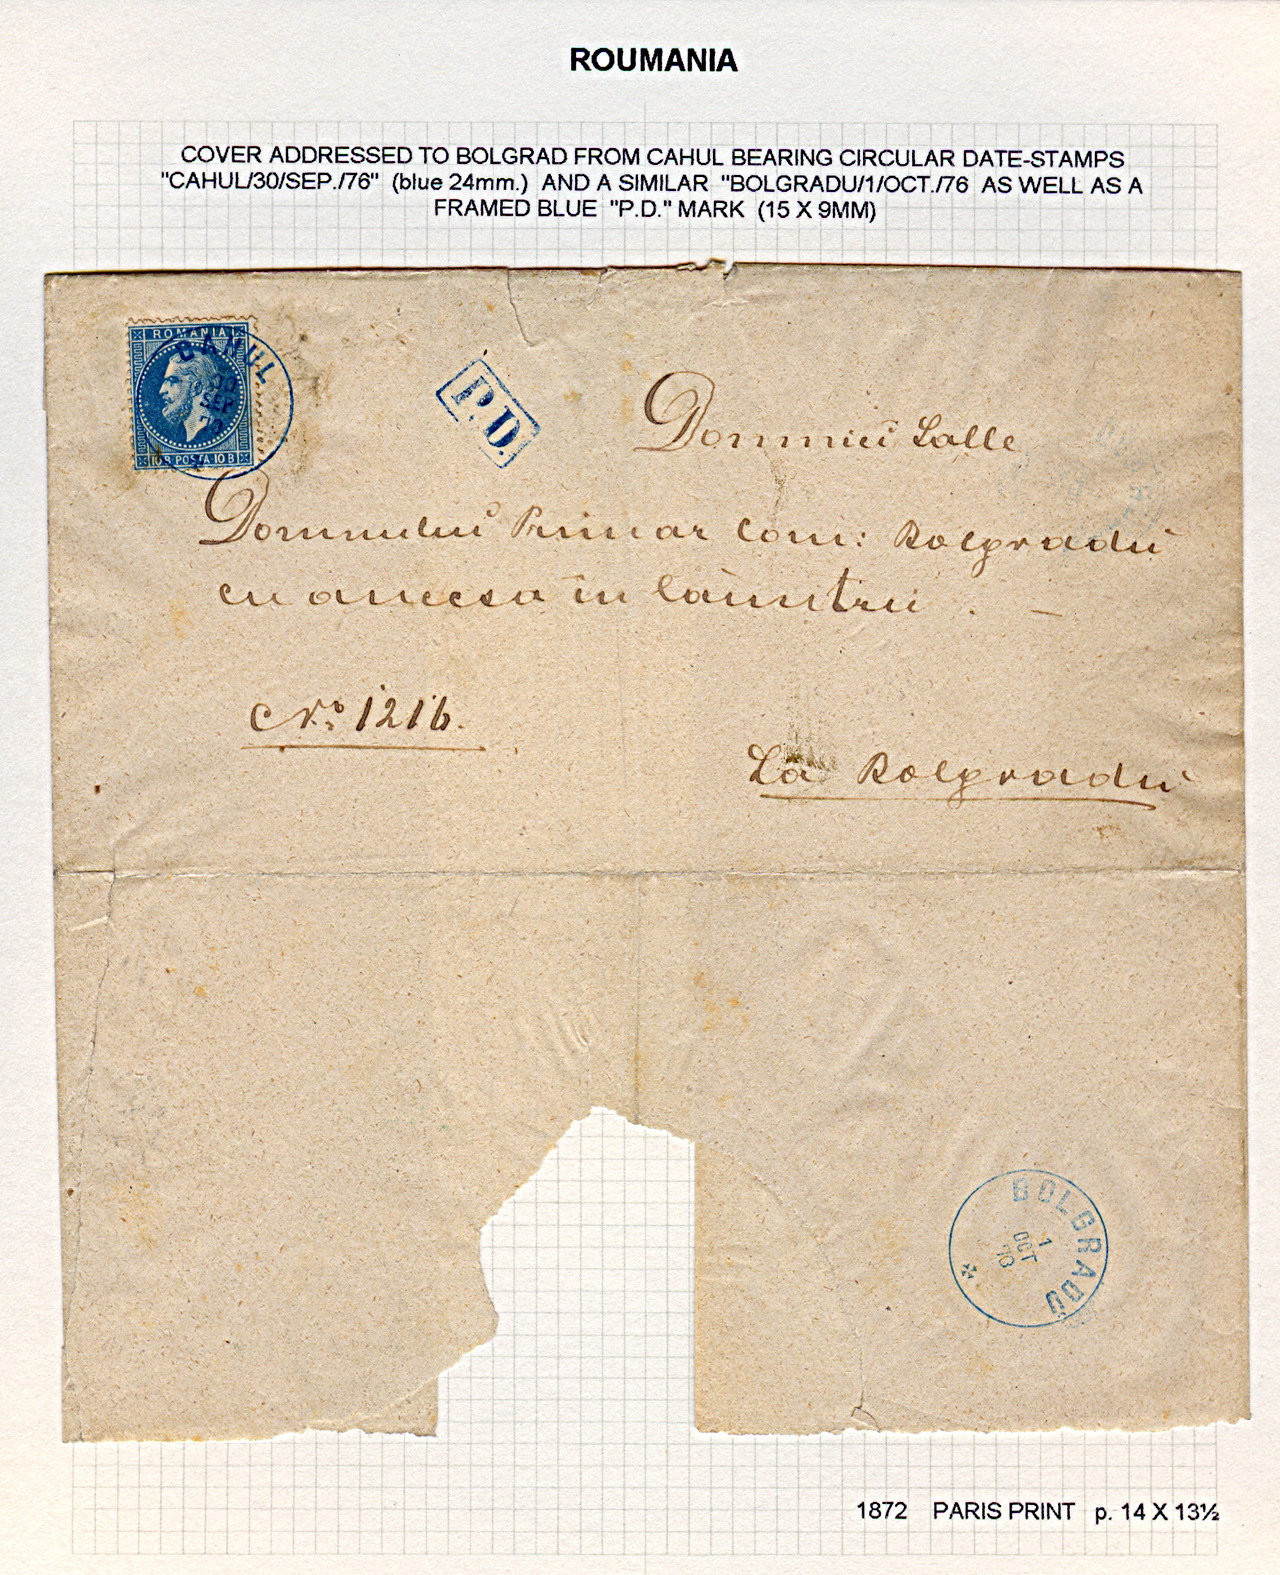 ROUMANIA
COVER ADDRESSED TO BOLGRAD FROM CAHUL BEARING CIRCULAR DATE-STAMPS
"CAHUL/30/SEP./76" (blue 24mm.) AND A SIMILAR "BOLGRADU/1/OCT./76 AS WELL AS A
FRAMED BLUE "P.D." MARK (15 X 9MM)
ROMANIA
CAHUL
SEP
10 B POSTA 10 B
P.D.
Domniei Salle
Domnului Primar Com: Bolgradŭ
cu anecsa în
No. 1216.
La Bolgradŭ
BOLGRADŬ
1
OCT
1872 PARIS PRINT p. 14 X 13½